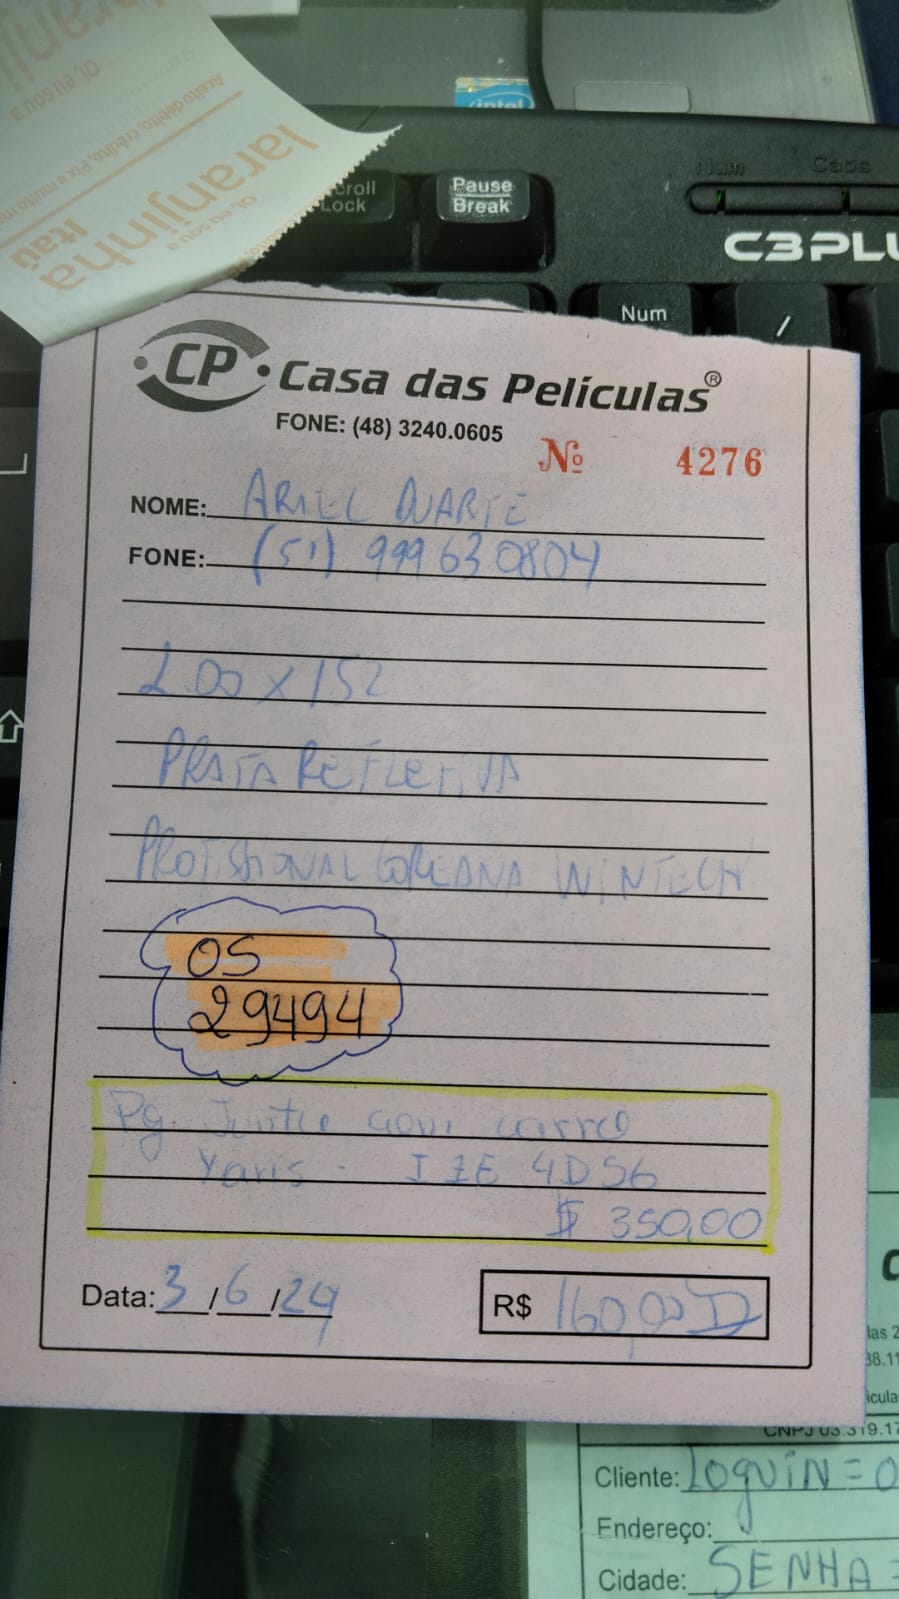 laranjinha
Itaú
Oi, eu sou a
Aceito débito, crédito, Pix e muito
intel
Scroll
Lock
Pause
Break
Num
Caps
C3PLU
Num
/
CP Casa das Películas®
FONE: (48) 3240.0605
Nº 4276
NOME: ARIEL DUARTE
FONE: (51) 999630804
2.00 x 1.52
PRATA REFLETIVA
PROFISSIONAL COREANA WINTECH
OS
29494
Pg. Junto com carro
Yaris. IZE 4D56
$ 350,00
Data: 3/6/24 R$ 160,00 D
CNPJ 03.319.17
Cliente: LOGUIN = 0
Endereço:
Cidade: SENHA =